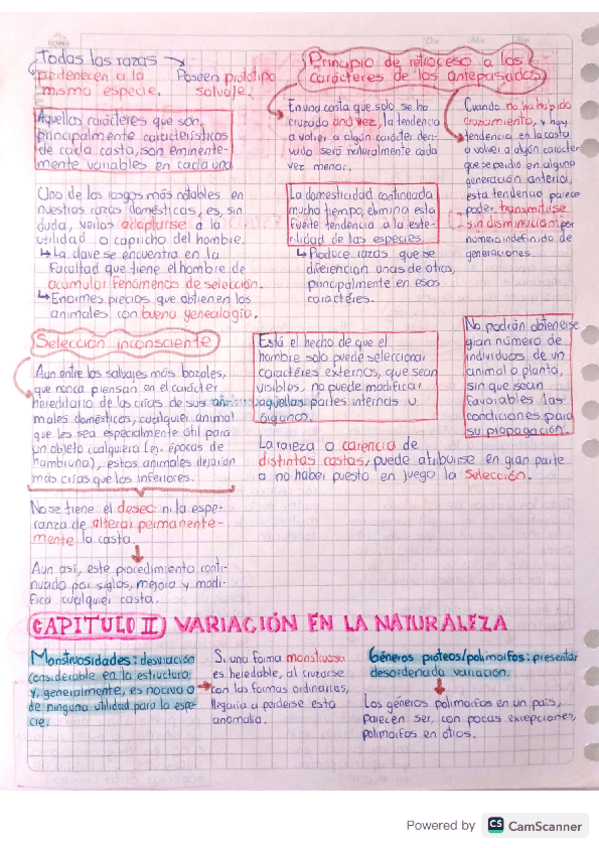 Todas las razas
pertenecen a la
misma especie.
Poseen prototipo
salvaje.
Principio de retroceso a los
carácteres de los antepasados
Aquellos carácteres que son
principalmente característicos
de cada casta, son eminente-
mente variables en cada una
En una casta que solo se ha
cruzado una vez, la tendencia
a volver a algún carácter deri-
vado será naturalmente cada
vez menor.
Cuando no ha habido
cruzamiento, y hay
tendencia en la casta
a volver a algún carácter
que se perdió en alguna
generación anterior,
esta tendencia parece
poder transmitirse
sin disminución por
número indefinido de
generaciones.
Uno de los rasgos más notables en
nuestras razas domésticas, es, sin
duda, verlas adaptarse a la
utilidad o capricho del hombre.
La clave se encuentra en la
Facultad que tiene el hombre de
acumular fenómenos de selección.
Enormes precios que obtienen los
animales con buena genealogía.
La domesticidad continuada
mucho tiempo, elimina esta
fuerte tendencia a la este-
rilidad de las especies.
Produce razas que se
diferencian unas de otras,
principalmente en esos
caractéres.
Selección inconsciente
Aun entre los salvajes más bozales,
que nunca piensan en el carácter
hereditario de las crías de sus ani-
males domésticos, cualquier animal
que les sea especialmente útil para
un objeto cualquiera (ej. épocas de
hambruna), estos animales dejarían
más crías que los inferiores.
No se tiene el deseo ni la espe-
ranza de alterar permanente-
mente la casta.
Aun así, este procedimiento conti-
nuado por siglos, mejora y modi-
fica cualquier casta.
Está el hecho de que el
hombre solo puede seleccionar
carácteres externos, que sean
visibles, no puede modificar
aquellas partes internas u
órganos.
No podrán obtenerse
gran número de
individuos de un
animal o planta,
sin que sean
favorables las
condiciones para
su propagación.
La rareza o carencia de
distintas castas, puede atribuirse en gran parte
a no haber puesto en juego la selección.
CAPITULO II VARIACIÓN EN LA NATURALEZA
Monstruosidades: desviación
considerable en la estructura
y, generalmente, es nocivo o
de ninguna utilidad para la espe-
cie.
Si una forma monstruosa
es heredable, al cruzarse
con las formas ordinarias,
llegaría a perderse esta
anomalía.
Géneros proteos/polimorfos: presentan
desordenada variación.
Los géneros polimorfos en un país,
parecen ser, con pocas excepciones,
polimorfos en otros.
Powered by CS CamScanner